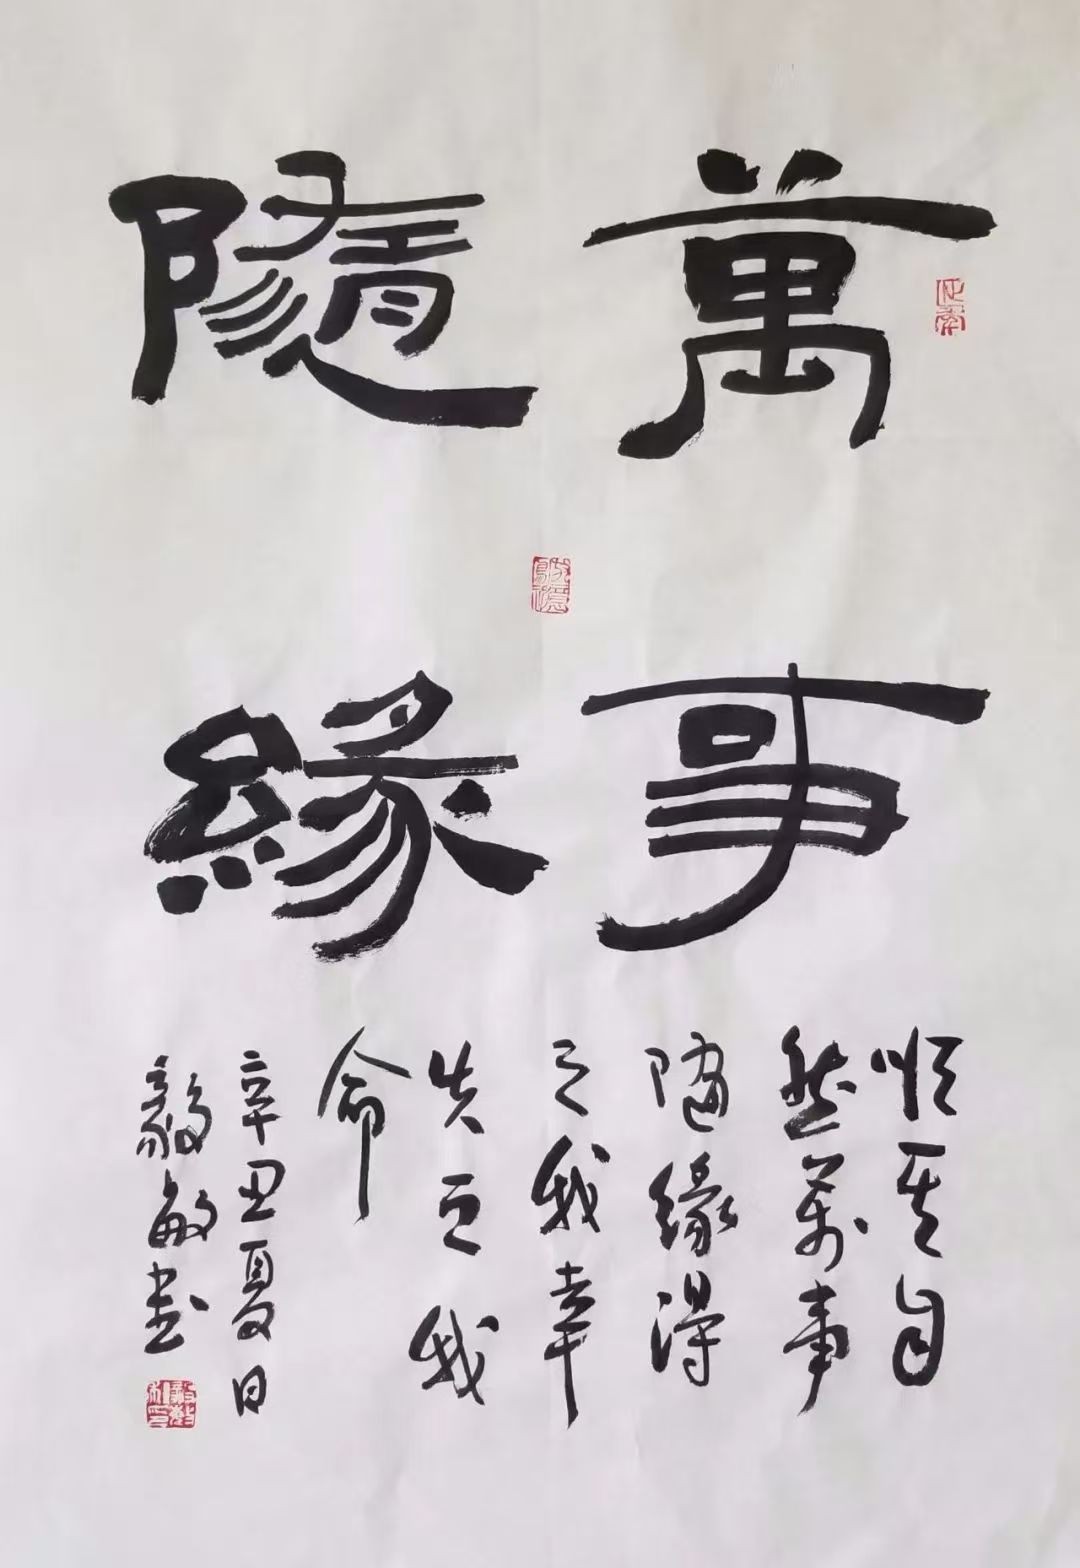 萬事
隨緣
順其自
然萬事
隨緣得
之我幸
失之我
命
辛丑夏日
毅敏書